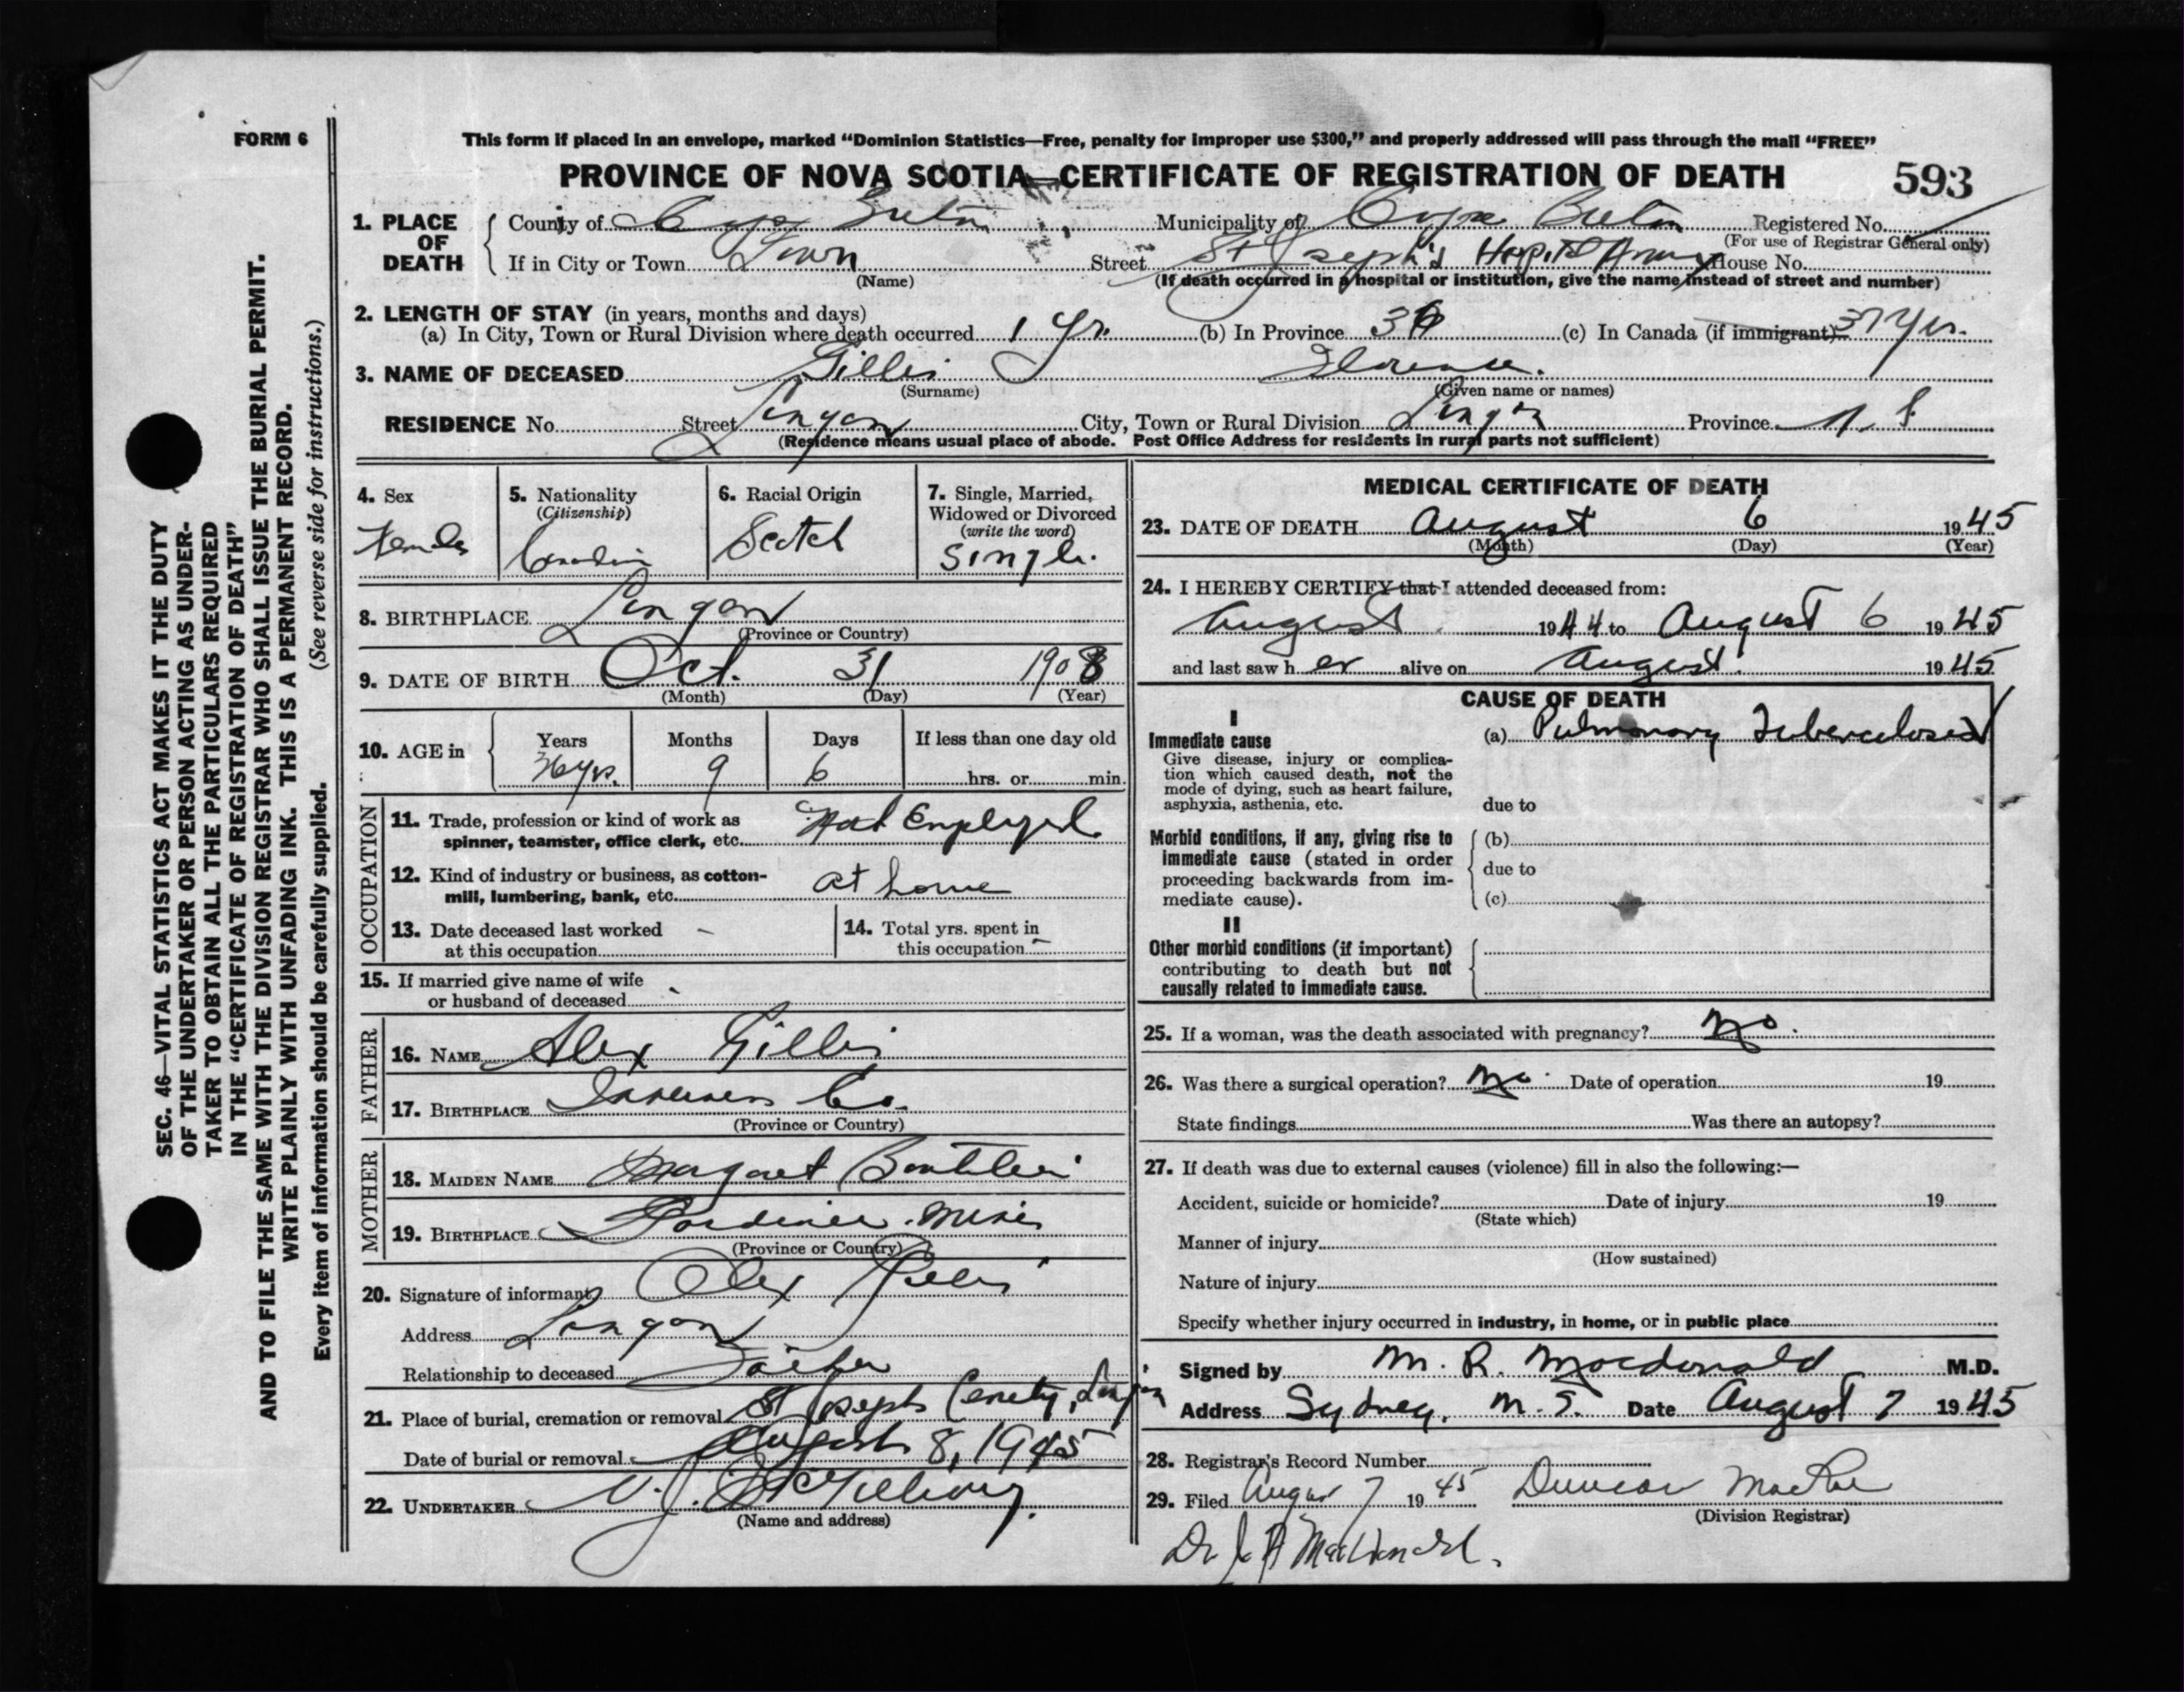 FORM 6
This form if placed in an envelope, marked “Dominion Statistics—Free, penalty for improper use $300,” and properly addressed will pass through the mail “FREE”
PROVINCE OF NOVA SCOTIA—CERTIFICATE OF REGISTRATION OF DEATH 593
1. PLACE OF DEATH
County of Cape Breton Municipality of Cape Breton Registered No.
(For use of Registrar General only)
If in City or Town Town Street St Joseph's Hospital House No.
(Name) (If death occurred in a hospital or institution, give the name instead of street and number)
2. LENGTH OF STAY (in years, months and days)
(a) In City, Town or Rural Division where death occurred 1 yr. (b) In Province 36 (c) In Canada (if immigrant) 37 yrs.
3. NAME OF DECEASED Gillis Florence.
(Surname) (Given name or names)
RESIDENCE No. Street Lingan City, Town or Rural Division Lingan Province N. S.
(Residence means usual place of abode. Post Office Address for residents in rural parts not sufficient)
4. Sex
Female
5. Nationality
(Citizenship)
Canadian
6. Racial Origin
Scotch
7. Single, Married,
Widowed or Divorced
(write the word)
Single.
8. BIRTHPLACE Lingan
(Province or Country)
9. DATE OF BIRTH Oct. 31 1908
(Month) (Day) (Year)
10. AGE in
Years Months Days If less than one day old
36 yrs. 9 6 hrs. or min.
OCCUPATION
11. Trade, profession or kind of work as
spinner, teamster, office clerk, etc. Not Employed.
12. Kind of industry or business, as cotton-
mill, lumbering, bank, etc. at home
13. Date deceased last worked –
at this occupation
14. Total yrs. spent in
this occupation –
15. If married give name of wife
or husband of deceased -
FATHER
16. NAME Alex Gillis
17. BIRTHPLACE Inverness Co.
(Province or Country)
MOTHER
18. MAIDEN NAME Margaret Boutilier
19. BIRTHPLACE Gardiner Mines
(Province or Country)
20. Signature of informant Alex Gillis
Address Lingan
Relationship to deceased Father
21. Place of burial, cremation or removal St Josephs Cemetery, Lingan
Date of burial or removal August 8, 1945
22. UNDERTAKER V. J. McGillivray.
(Name and address)
MEDICAL CERTIFICATE OF DEATH
23. DATE OF DEATH August 6 1945
(Month) (Day) (Year)
24. I HEREBY CERTIFY that I attended deceased from:
August 1944 to August 6 1945
and last saw her alive on August. 1945
CAUSE OF DEATH
I
Immediate cause
Give disease, injury or complica-
tion which caused death, not the
mode of dying, such as heart failure,
asphyxia, asthenia, etc.
(a) Pulmonary Tuberculosis
due to
Morbid conditions, if any, giving rise to
immediate cause (stated in order
proceeding backwards from im-
mediate cause).
(b)
due to
(c)
II
Other morbid conditions (if important)
contributing to death but not
causally related to immediate cause.
25. If a woman, was the death associated with pregnancy? No.
26. Was there a surgical operation? No. Date of operation 19
State findings Was there an autopsy?
27. If death was due to external causes (violence) fill in also the following:—
Accident, suicide or homicide? Date of injury 19
(State which)
Manner of injury
(How sustained)
Nature of injury
Specify whether injury occurred in industry, in home, or in public place
Signed by M. R. Macdonald M.D.
Address Sydney, N. S. Date August 7 1945
28. Registrar's Record Number
29. Filed August 7 1945 Duncan MacRae
(Division Registrar)
Dr. MacDonald.
SEC. 46—VITAL STATISTICS ACT MAKES IT THE DUTY
OF THE UNDERTAKER OR PERSON ACTING AS UNDER-
TAKER TO OBTAIN ALL THE PARTICULARS REQUIRED
IN THE “CERTIFICATE OF REGISTRATION OF DEATH”
AND TO FILE THE SAME WITH THE DIVISION REGISTRAR WHO SHALL ISSUE THE BURIAL PERMIT.
WRITE PLAINLY WITH UNFADING INK. THIS IS A PERMANENT RECORD.
Every item of information should be carefully supplied. (See reverse side for instructions.)